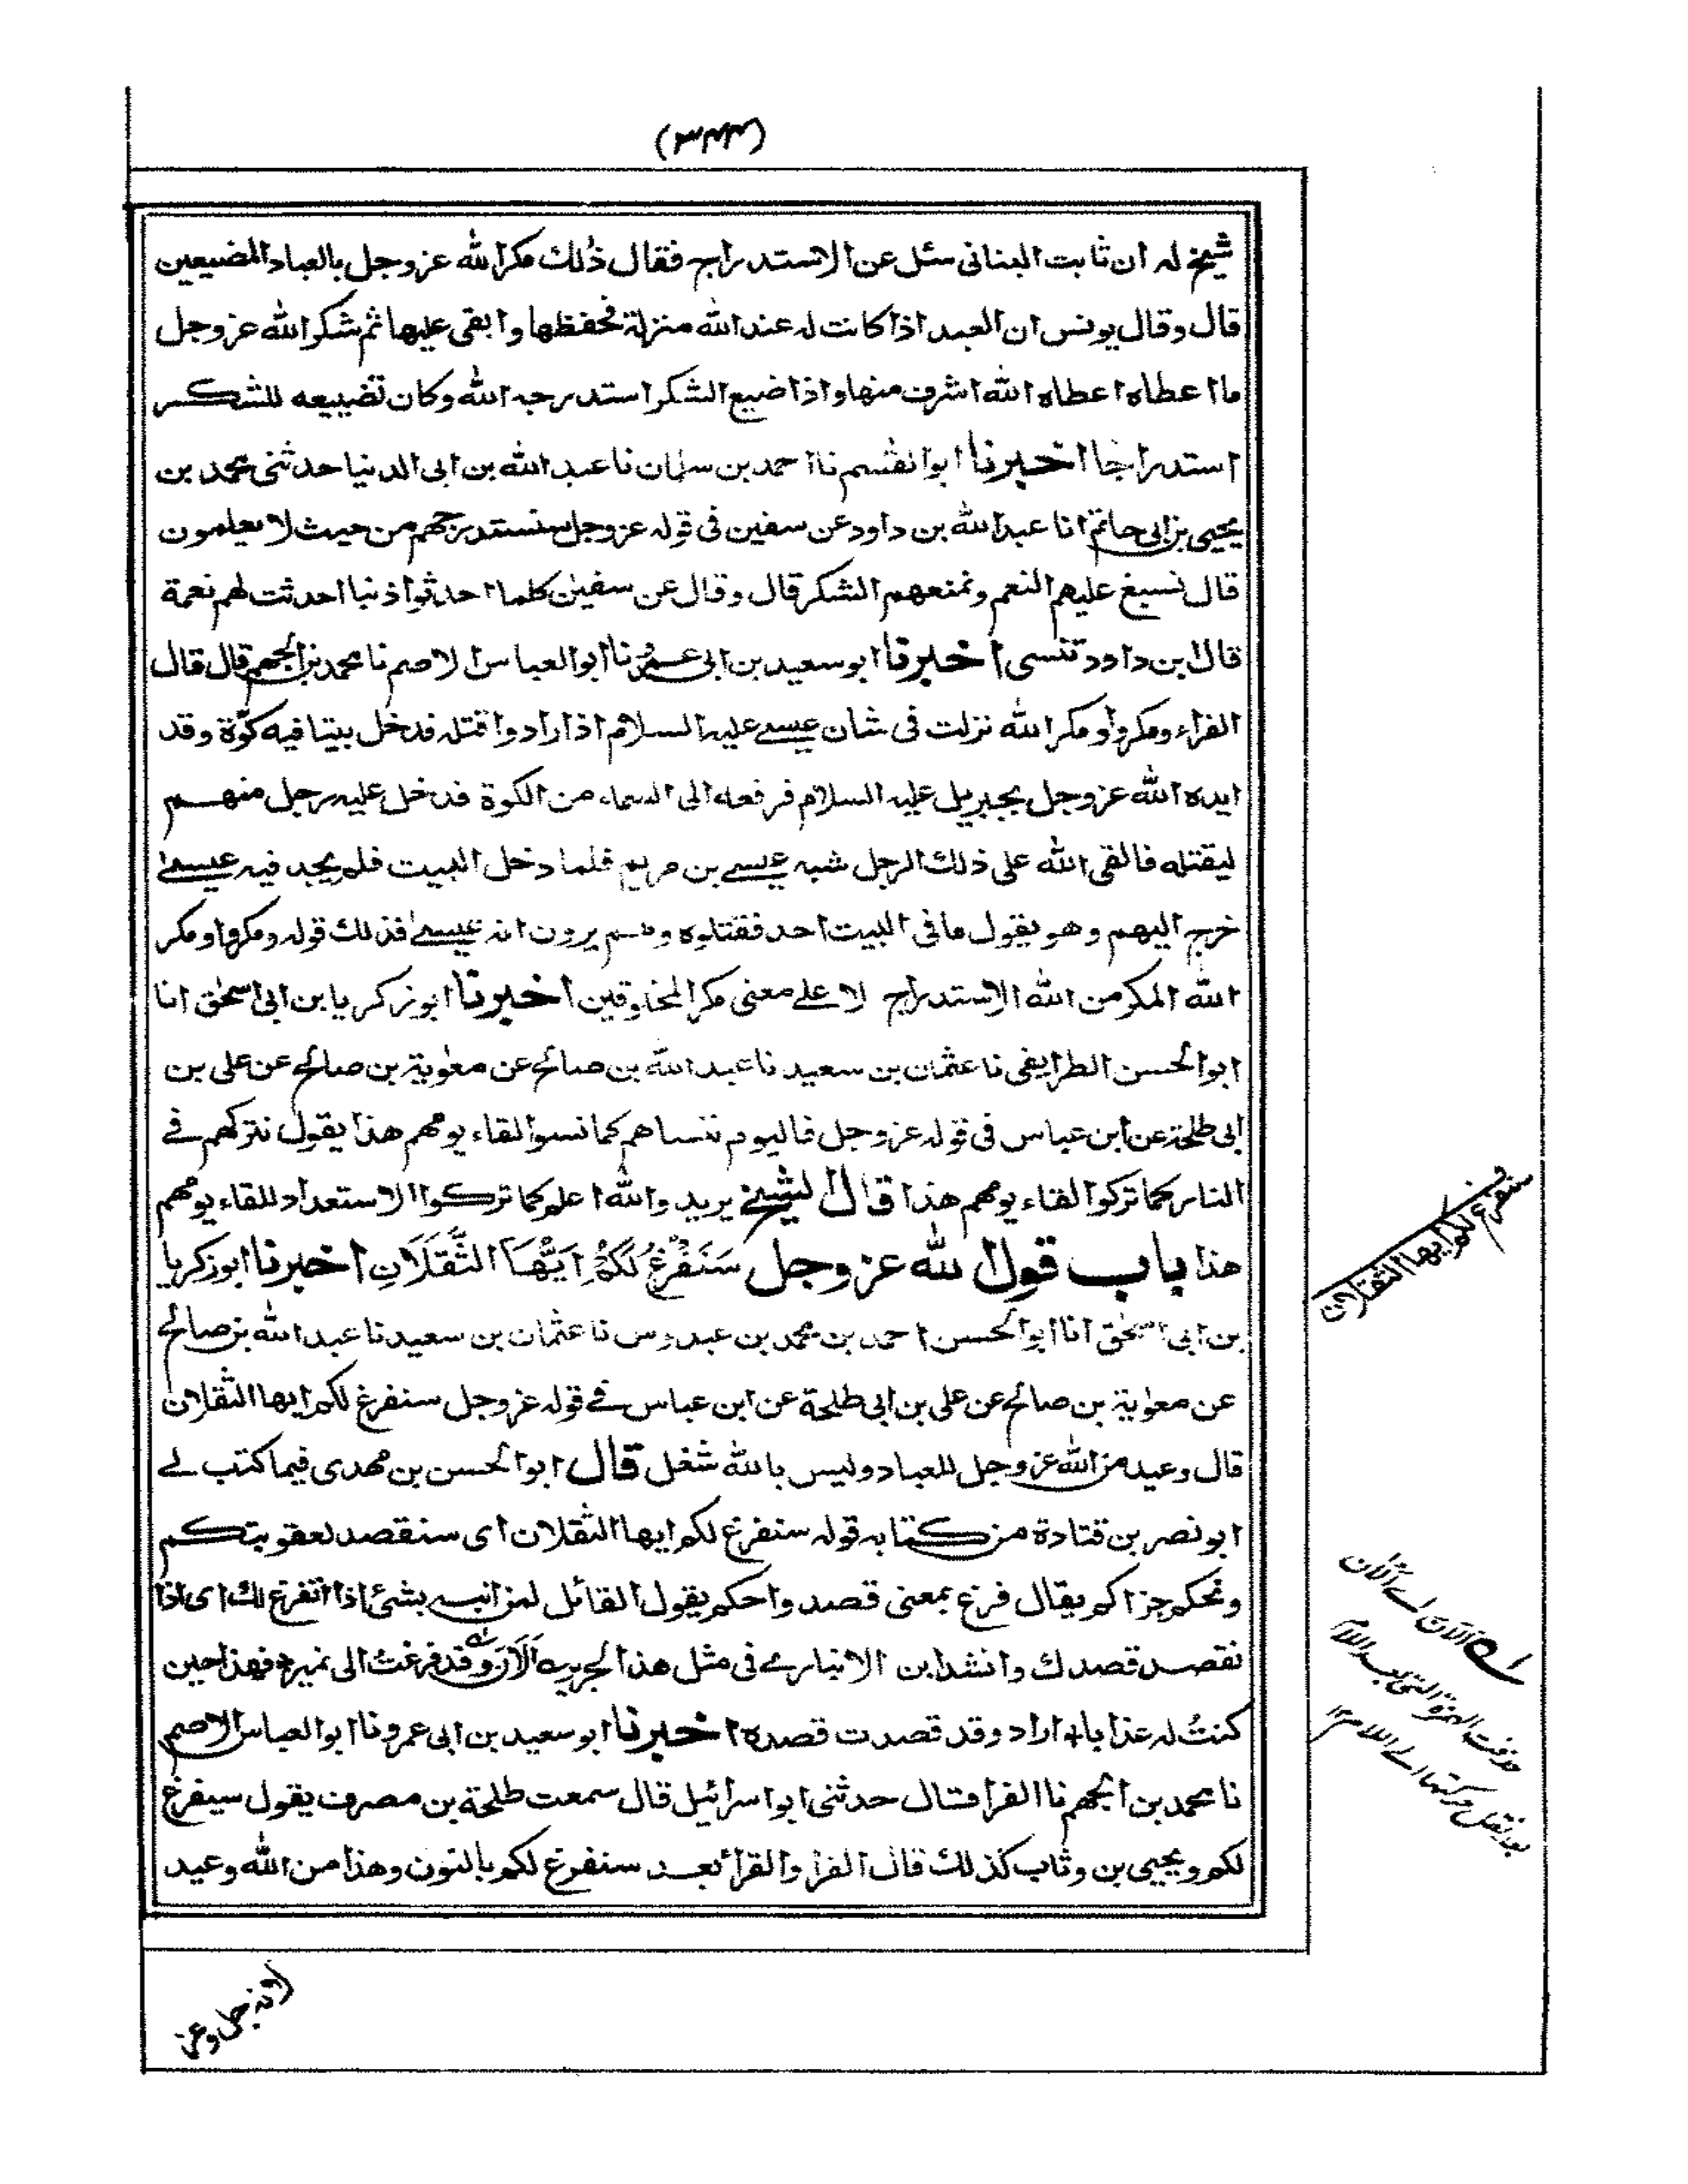 شيخ له ان ثابت البنانى سئل عن الاستدراج فقال ذلك مكر الله عز وجل بالعباد المضيعين
قال وقال يونس ان العبد اذا كانت له عند الله منزلة فحفظها وابقى عليها ثم شكر الله عز وجل
ما اعطاه اعطاه الله اشرف منها واذا ضيع الشكر استدرجه الله وكان تضييعه للشكر
استدراجا اخبرنا ابو القسم نا احمد بن سلمان نا عبد الله بن ابى الدنيا حدثنى محمد بن
يحيى بن ابى حاتم انا عبد الله بن داود عن سفين فى قوله عز وجل سنستدرجهم من حيث لا يعلمون
قال نسبغ عليهم النعم ونمنعهم الشكر قال وقال عن سفين كلما احدثوا ذنبا احدثت لهم نعمة
قال ابن داود تنسى اخبرنا ابو سعيد بن ابى عمرو نا ابو العباس الاصم نا محمد بن الجهم قال قال
الفراء ومكروا ومكر الله نزلت فى شان عيسے عليه السلام اذ ارادوا قتله فدخل بيتا فيه كوّة وقد
ايده الله عز وجل بجبريل عليه السلام فرفعه الى السماء من الكوة فدخل عليه رجل منهم
ليقتله فالقى الله على ذلك الرجل شبه عيسے بن مريم فلما دخل البيت فلم يجد فيه عيسے
خرج اليهم وهو يقول ما فى البيت احد فقتلوه وهم يرون انه عيسے فذلك قوله ومكروا ومكر
الله المكر من الله الاستدراج لا علے معنى مكر المخلوقين اخبرنا ابو زكريا بن ابى اسحٰق انا
ابو الحسن الطرايفى نا عثمان بن سعيد نا عبد الله بن صالح عن معٰوية بن صالح عن على بن
ابى طلحة عن ابن عباس فى قوله عز وجل فاليوم ننساهم كما نسوا لقاء يومهم هذا يقول نتركهم فے
النار كما تركوا لقاء يومهم هذا قال الشيخ يريد والله اعلم كما تركوا الاستعداد للقاء يومهم
هذا باب قول الله عز وجل سَنَفْرُغُ لَكُمْ اَيُّهَا الثَّقَلَانِ اخبرنا ابو زكريا
بن ابى اسحٰق انا ابو الحسن احمد بن محمد بن عبدوس نا عثمان بن سعيد نا عبد الله بن صالح
عن معٰوية بن صالح عن على بن ابى طلحة عن ابن عباس فے قوله عز وجل سنفرغ لكم ايها الثقلان
قال وعيد من الله عز وجل للعباد وليس بالله شغل قال ابو الحسن بن مهدى فيما كتب لے
ابو نصر بن قتادة من كتابه قوله سنفرغ لكم ايها الثقلان اى سنقصد لعقوبتكم
ونحكم جزاكم يقال فرغ بمعنى قصد واحكم يقول القائل لمن انبه بشئ اذا اتفرغ لك اى اذا
نقصد قصدك وانشد ابن الانبارے فى مثل هذا لجرير اَلَانَ وقد فرغتُ الى نمير فهذا حين
كنتُ له عذابا اراد وقد قصدت قصده اخبرنا ابو سعيد بن ابى عمرو نا ابو العباس الاصم
نا محمد بن الجهم نا الفرا قال حدثنى ابو اسرائيل قال سمعت طلحة بن مصرف يقول سيفرغ
لكم ويحيى بن وثاب كذلك قال الفرا والقراء بعد سنفرغ لكم بالنون وهذا من الله وعيد
سنفرغ لكم ايها الثقلان
لانه جل وعز